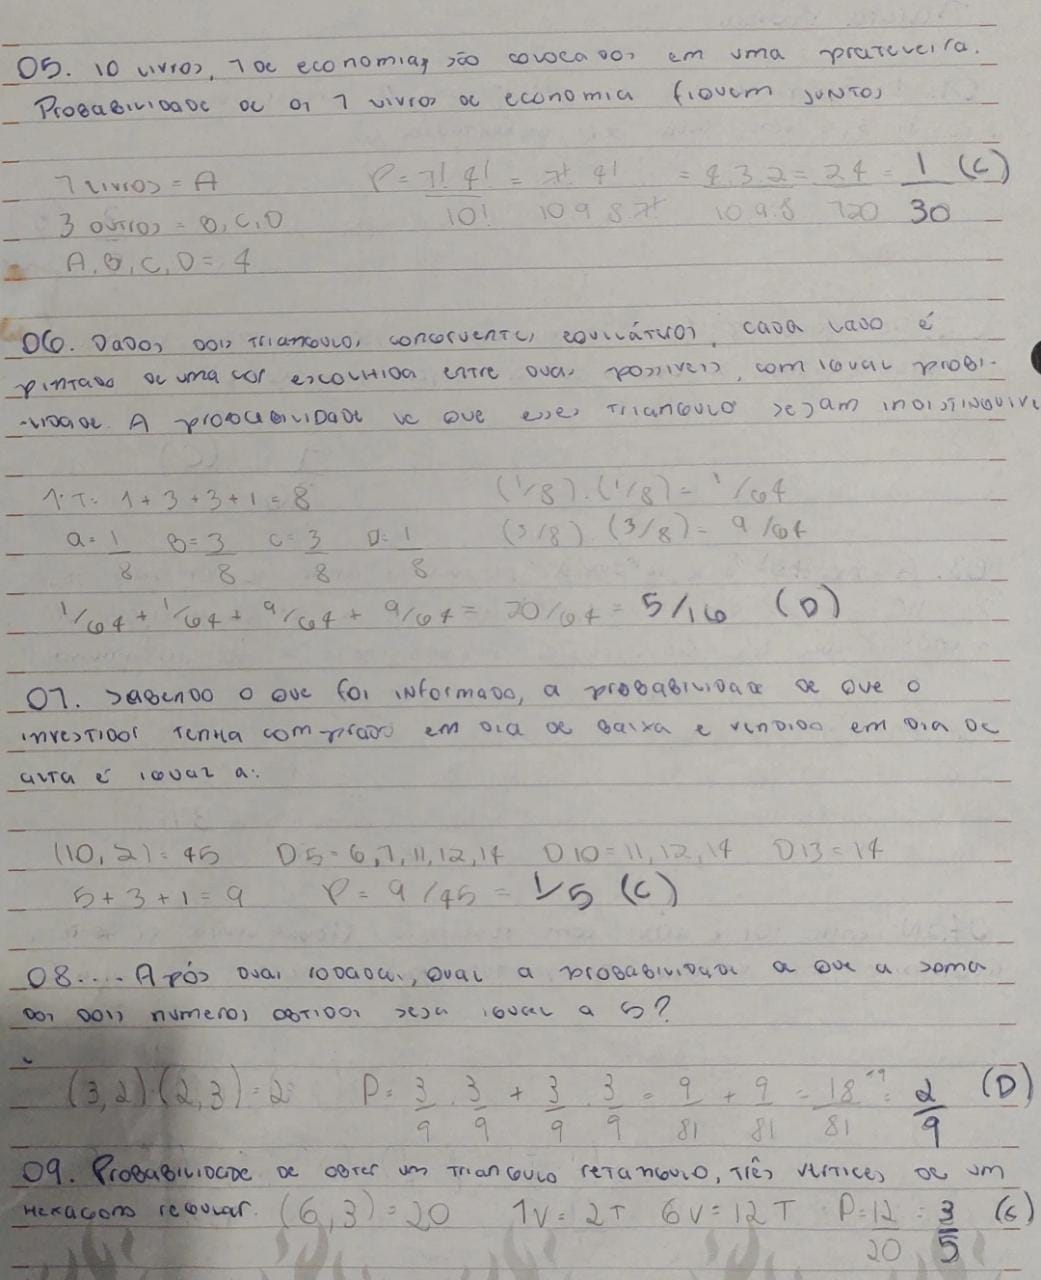 05. 10 livros, 7 de economia, são colocados em uma prateleira.
Probabilidade de os 7 livros de economia fiquem juntos
7 livros = A P = 7! 4! / 10! = 7! 4! / 10 9 8 7! = 4.3.2 / 10 9.8 = 24 / 720 = 1 / 30 (C)
3 outros = B, C, D
A, B, C, D = 4
06. Dados dois triangulos congruentes equiláteros, cada lado é
pintado de uma cor escolhida entre duas possiveis, com igual probi-
-lidade. A probabilidade de que esses triangulo sejam indistinguive
N.T = 1 + 3 + 3 + 1 = 8 (1/8) . (1/8) = 1/64
a = 1/8 B = 3/8 C = 3/8 D = 1/8 (3/8) . (3/8) = 9/64
1/64 + 1/64 + 9/64 + 9/64 = 20/64 = 5/16 (D)
07. Sabendo o que foi informado, a probabilidade de que o
investidor tenha comprado em dia de baixa e vendido em dia de
alta é igual a:
(10, 2) = 45 D5 = 6, 7, 11, 12, 14 D10 = 11, 12, 14 D13 = 14
5 + 3 + 1 = 9 P = 9/45 = 1/5 (C)
08.... Após duas rodadas, qual a probabilidade a que a soma
dos dois numeros obtidos seja igual a 5?
(3,2) (2,3) = 2 P = 3/9 . 3/9 + 3/9 . 3/9 = 9/81 + 9/81 = 18/81 ÷9 = 2/9 (D)
09. Probabilidade de obter um triangulo retangulo, três vertices de um
hexagono regular. (6,3) = 20 1V = 2T 6V = 12T P = 12/20 = 3/5 (C)